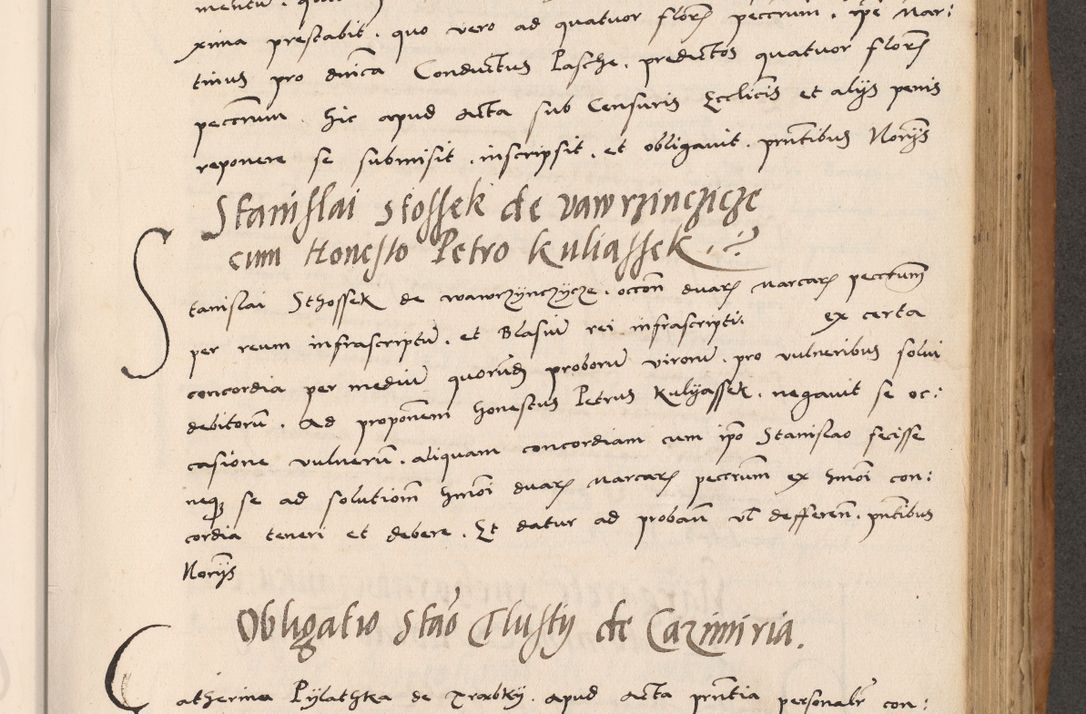 xima prestabit . quo vero ad quatuor floreñ peccrum . ipe Mar:
tinus pro dnica Conductus Pasche . predictos quatuor floreñ
peccrum . hic apud Acta sub Censuris Ecclicis et alijs penis
reponere se submisit . inscripsit . et obligauit . pntibus Norijs
Stanislai Stossek de vawrzinczicze
cum Honesto Petro Kuliassek
Stanislai Sthossek de wawrzynczycze . occon duarum marcarum peccrum
per reum infrascriptu . et Blasiu rei infrascripti ex certa
concordia per mediu quorundam proboru viroru . pro vulneribus solui
debitoru . Ad proponem honestus Petrus Kulyassek . negauit se oc:
casione vulneru . aliquam concordiam cum ipo Stanislao fecisse
neque se ad solutiom hmoi duarum marcarum peccrum ex hmoi con:
cordia teneri et debere . Et datur ad proban vl defferen . pntibus
Norijs
Obligatio Stao Tlusty de Cazimiria .
Catherina Pylathka de Trabky . apud Acta prntia personalr con: